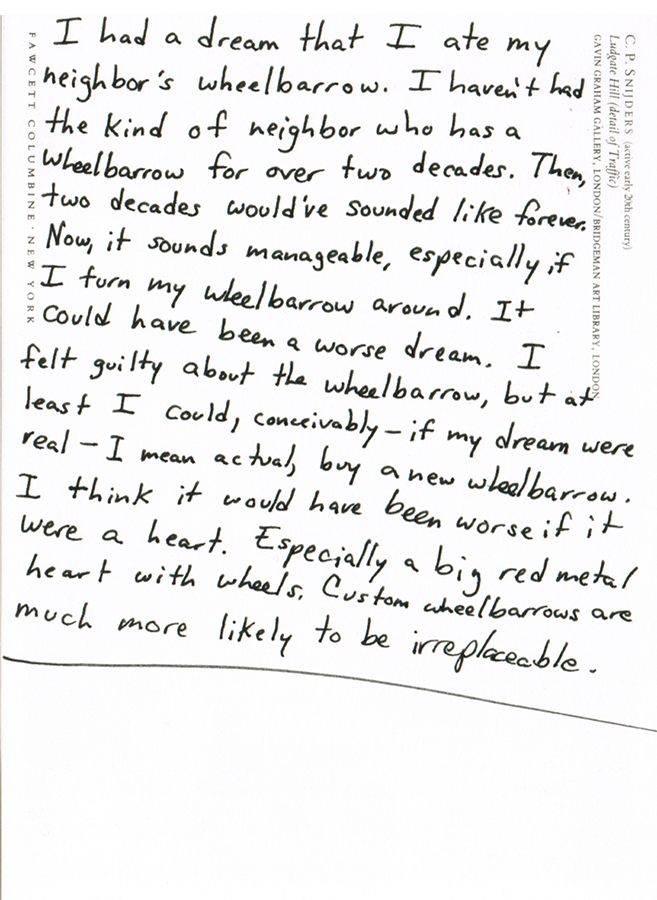 I had a dream that I ate my
neighbor's wheelbarrow. I haven't had
the kind of neighbor who has a
wheelbarrow for over two decades. Then,
two decades would've sounded like forever.
Now, it sounds manageable, especially if
I turn my wheelbarrow around. It
could have been a worse dream. I
felt guilty about the wheelbarrow, but at
least I could, conceivably – if my dream were
real – I mean actual, buy a new wheelbarrow.
I think it would have been worse if it
were a heart. Especially a big red metal
heart with wheels. Custom wheelbarrows are
much more likely to be irreplaceable.
FAWCETT COLUMBINE · NEW YORK
C. P. SNIJDERS (active early 20th century)
Ludgate Hill (detail of Traffic)
GAVIN GRAHAM GALLERY, LONDON/BRIDGEMAN ART LIBRARY, LONDON